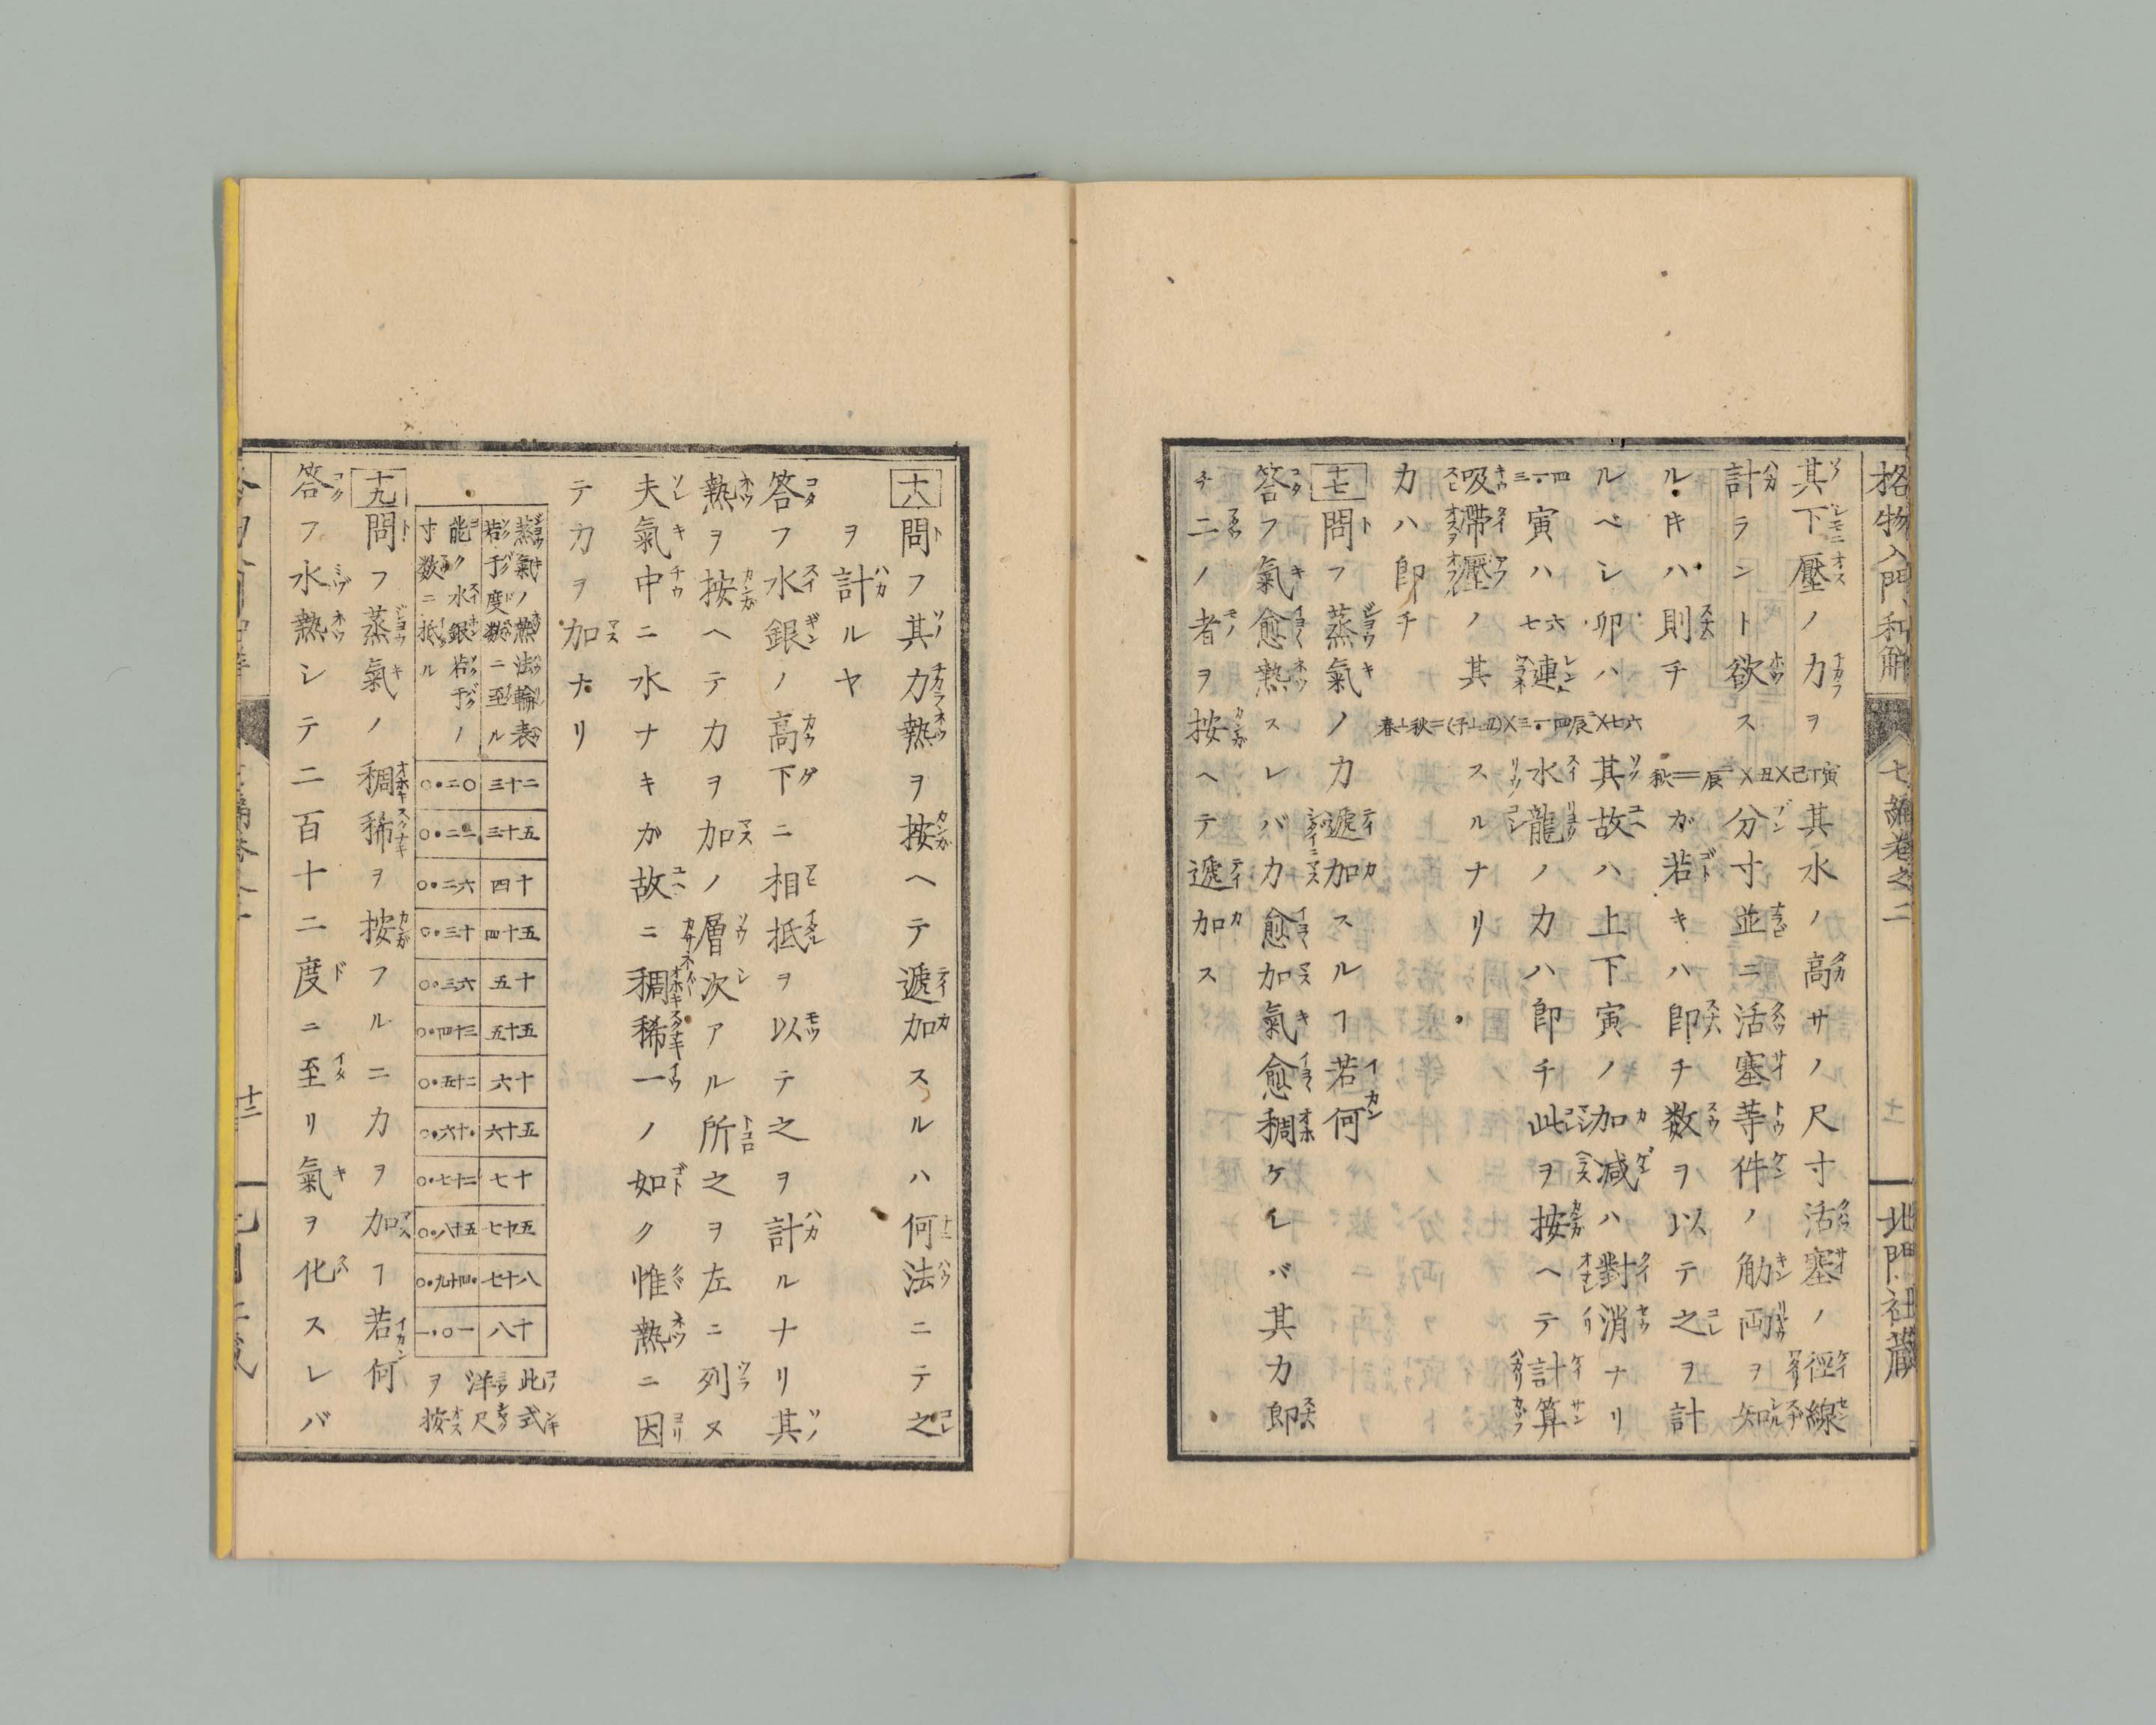 格物入門和解 七編卷之二 十一 北門社藏
其下壓ノ力ヲ寅丁己X丑X二辰=秋其水ノ高サノ尺寸活塞ノ徑線
計ラント欲ス分寸並ニ活塞等件ノ觔両ヲ知
ルキハ則チ秋ガ若キハ即チ数ヲ以テ之ヲ計
ルベシ卯ハ其故ハ上下寅ノ加減ハ對消ナリ
三一・四寅ハ七六連水龍ノ力ハ即チ此ヲ按ヘテ計算
吸滯壓ノ其スルナリ
力ハ即チ
十七問フ蒸氣ノ力遞加スルヿ若何
答フ氣愈熱スレバ力愈加氣愈稠ケレバ其力即
チ二ノ者ヲ按ヘテ遞加ス
十八問フ其力熱ヲ按ヘテ遞加スルハ何法ニテ之
ヲ計ルヤ
答フ水銀ノ高下ニ相抵ヲ以テ之ヲ計ルナリ其
熱ヲ按ヘテ力ヲ加ノ層次アル所之ヲ左ニ列ヌ
夫氣中ニ水ナキガ故ニ稠稀一ノ如ク惟熱ニ因
テ力ヲ加ナリ
蒸氣ノ熱法輪表
若干度数ニ至ル
能ク水銀若干ノ
寸数ニ抵ル
三十二 〇・二〇
三十五 〇・二二
四十 〇・二六
四十五 〇・三十
五十 〇・三六
五十五 〇・四十三
六十 〇・五十二
六十五 〇・六十・
七十 〇・七十二
七十五 〇・八十五
七十八 〇・九十四・
八十 一・〇一
此式
洋尺
ヲ按
十九問フ蒸氣ノ稠稀ヲ按フルニ力ヲ加ヿ若何
答フ水熱シテ二百十二度ニ至リ氣ヲ化スレバ
十二